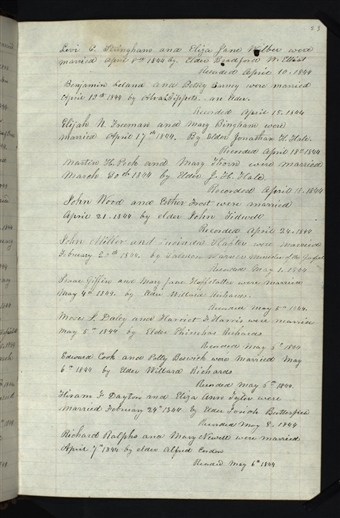 Levi S. and Eliza Jane Wilber were
married April 8th 1844 by Elder Bradford W. Elliot
Recorded April 10. 1844
Benjamin Leland and Betsy Burrey were married
April 12th 1844 by
Recorded April 18. 1844
Elijah N. Freeman and Mary Bingham were
married April 17th 1844. By Elder Jonathan H. Hale.
Recorded April 18th 1844
Martin H. Peck and Mary Thorn were married
March 30th 1844 by Elder J. H. Hale
Recorded April 18. 1844
John Wood and Esther Frost were married
April 21. 1844 by elder John Tidwell
Recorded April 24. 1844
John Miller and were married
February 1844. by of the Gospel
Recorded May 1. 1844
Isaac and Mary Jane Hofstatter were married
May 4th 1844. by Elder Willard Richards.
Recorded May 1844
Moses S. Daley and Harriet Harris were married
May 5th 1844 by Elder Phinehas Richards
Recorded May 1844
Edward Cook and Betty Buwick were Married May
6th 1844 by Elder Willard Richards
Recorded May 6th 1844
Hiram F. Dayton and Eliza Ann Taylor were
married February 24th 1844. by Elder Josiah Butterfield
Recorded May 8. 1844
Richard Ralphs and Mary Newell were married
April 7th 1844 by elder Alfred Cordon
Recorded May 6th 1844